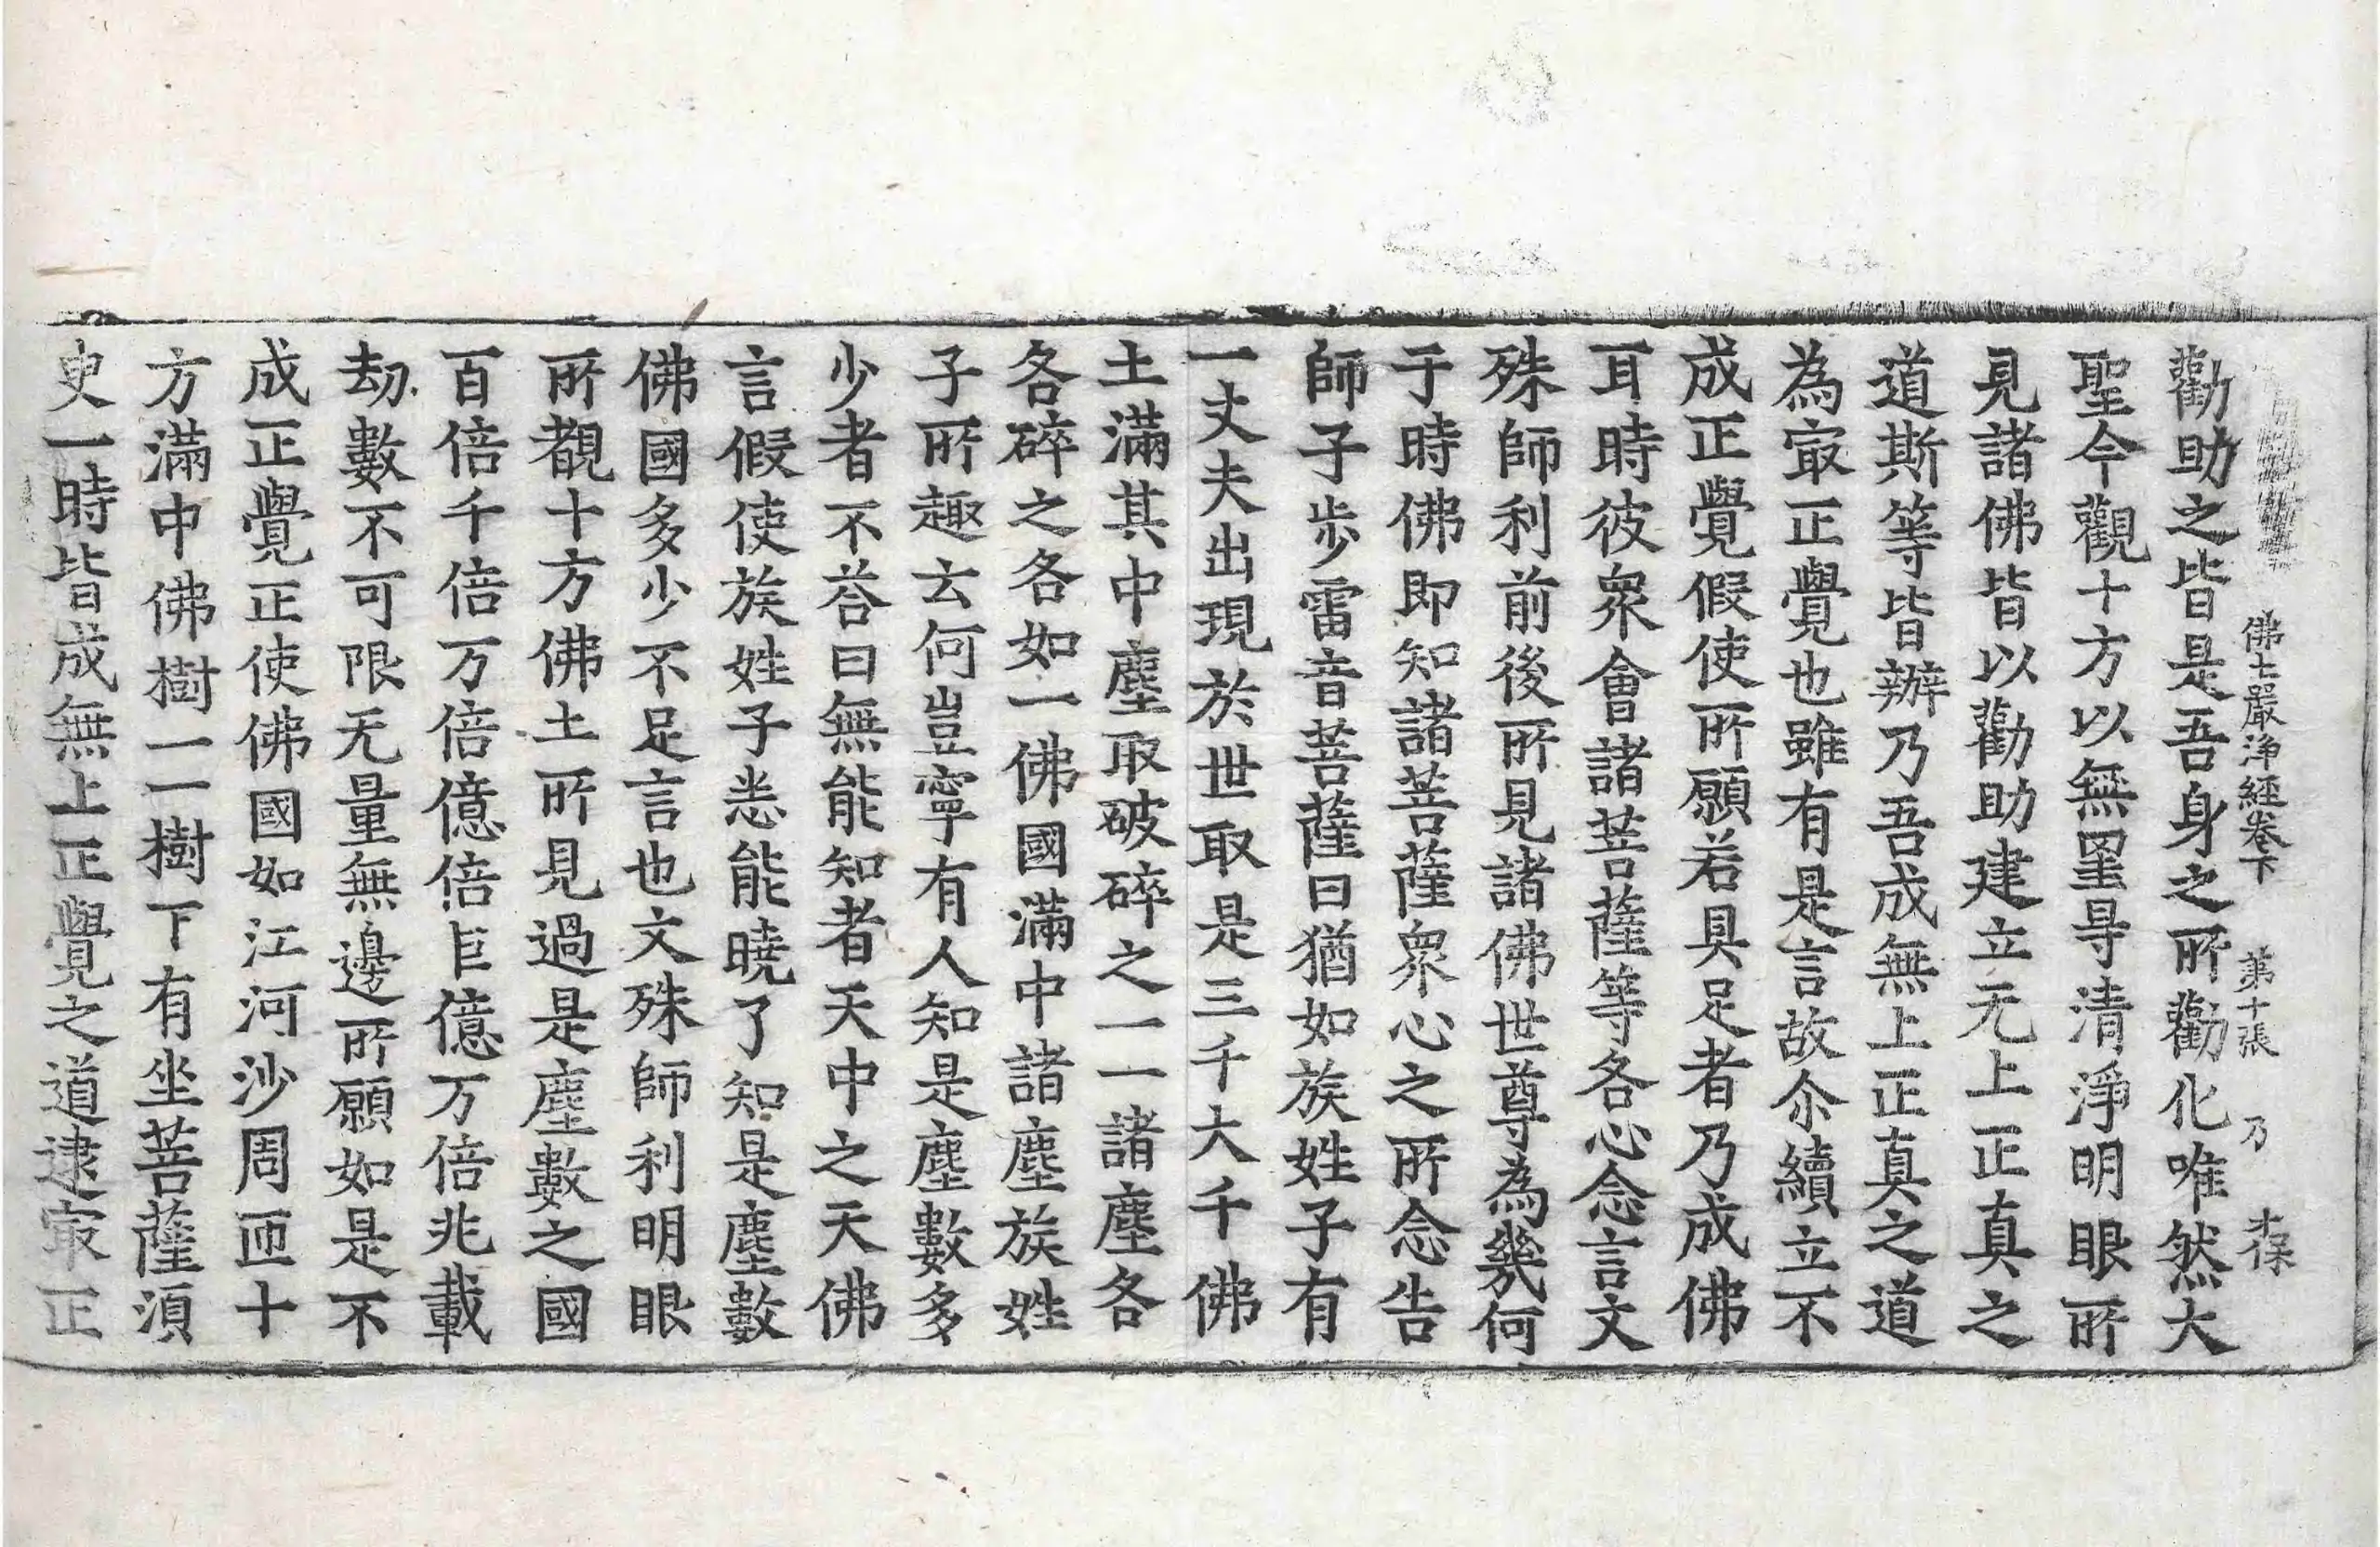 佛土嚴淨經卷下 第十張 乃 才保
勸助之皆是吾身之所勸化唯然大
聖今觀十方以無罣㝵清淨明眼所
見諸佛皆以勸助建立无上正真之
道斯等皆辦乃吾成無上正真之道
為㝡正覺也雖有是言故尒續立不
成正覺假使所願若具足者乃成佛
耳時彼衆會諸菩薩等各心念言文
殊師利前後所見諸佛世尊為幾何
于時佛即知諸菩薩衆心之所念告
師子步雷音菩薩曰猶如族姓子有
一丈夫出現於世取是三千大千佛
土滿其中塵取破碎之一一諸塵各
各碎之各如一佛國滿中諸塵族姓
子所趣云何豈寧有人知是塵數多
少者不荅曰無能知者天中之天佛
言假使族姓子悉能曉了知是塵數
佛國多少不足言也文殊師利明眼
所覩十方佛土所見過是塵數之國
百倍千倍万倍億倍巨億万倍兆載
劫數不可限无量無邊所願如是不
成正覺正使佛國如江河沙周匝十
方滿中佛樹一一樹下有坐菩薩須
臾一時皆成無上正覺之道逮㝡正